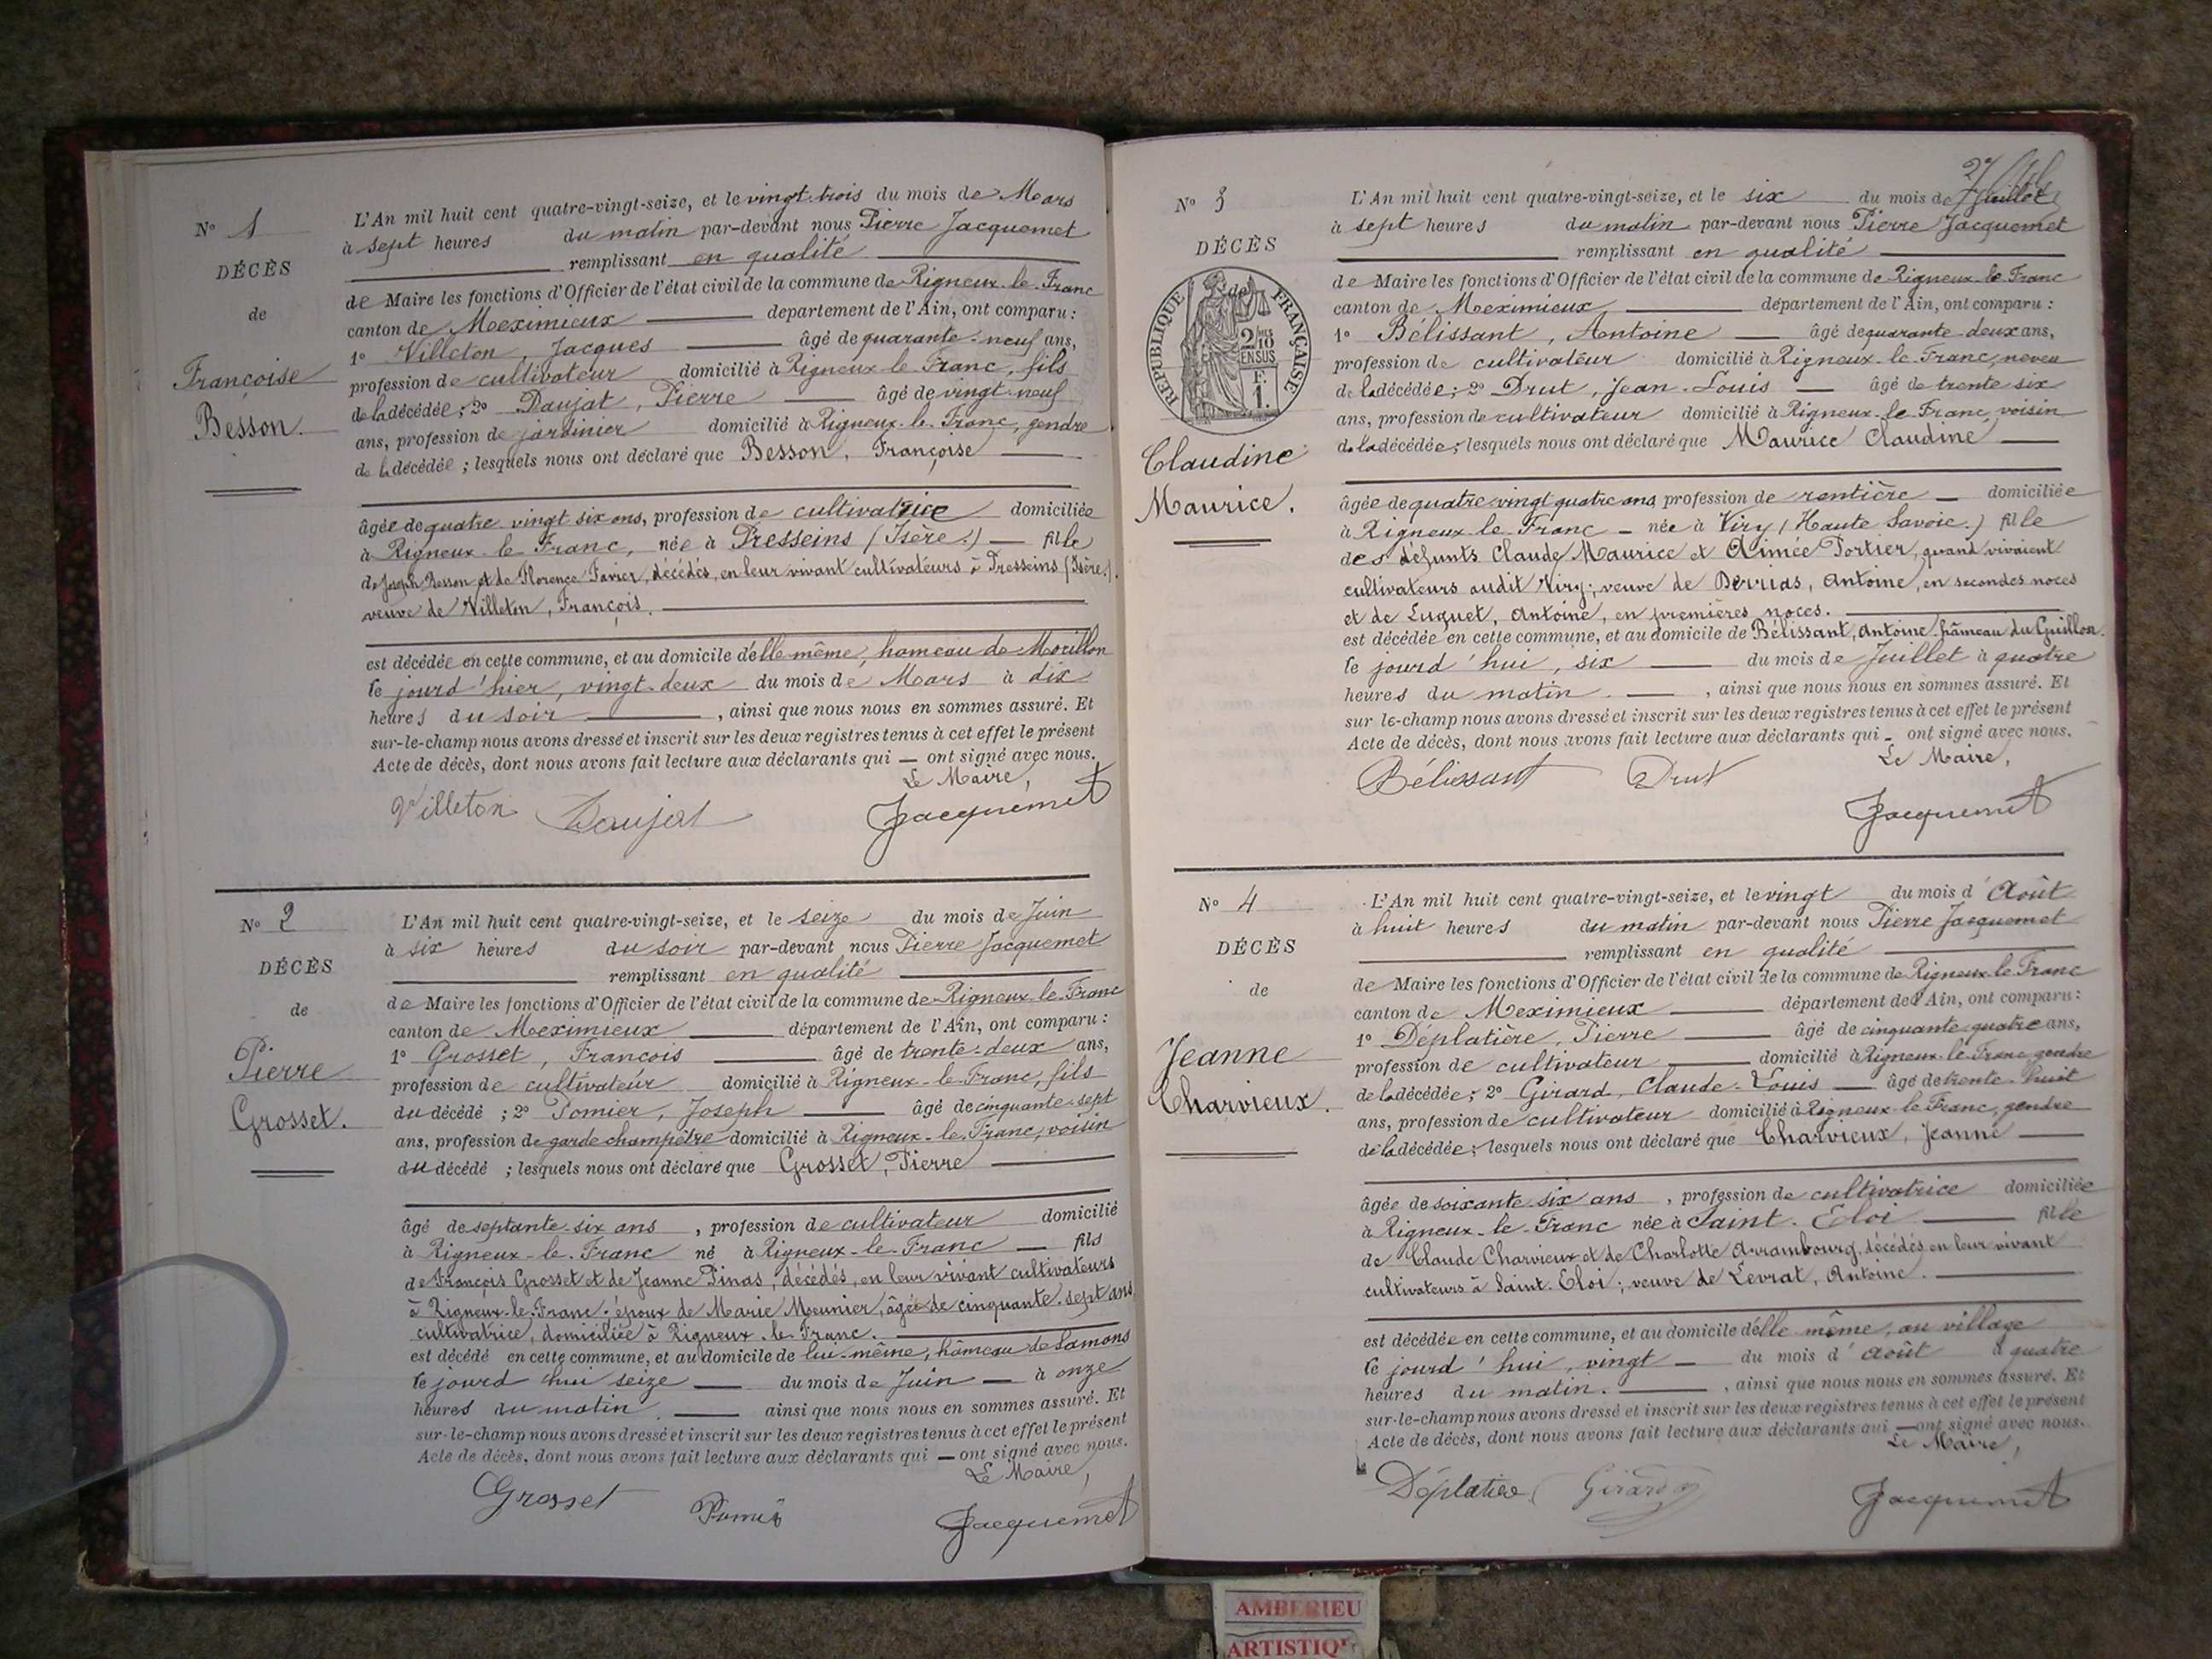 N° 1
DÉCÈS
de
Françoise
Besson.
L'An mil huit cent quatre-vingt-seize, et le vingt-trois du mois de Mars
à sept heures du matin par-devant nous Pierre Jacquemet
remplissant en qualité
de Maire les fonctions d'Officier de l'état civil de la commune de Rigneux-le-Franc
canton de Meximieux département de l'Ain, ont comparu :
1° Villeton, Jacques âgé de quarante-neuf ans,
profession de cultivateur domicilié à Rigneux le Franc, fils
de la décédée ; 2° Daujat, Pierre âgé de vingt-neuf
ans, profession de jardinier domicilié à Rigneux-le-Franc, gendre
de la décédée ; lesquels nous ont déclaré que Besson, Françoise
âgée de quatre vingt six ans, profession de cultivatrice domiciliée
à Rigneux-le Franc, née à Presseins (Isère.) fille
de Joseph Besson et de Florence Favier, décédés, en leur vivant cultivateurs à Presseins (Isère.)
veuve de Villeton, François.
est décédée en cette commune, et au domicile d'elle même, hameau de Morillon
le jourd'hier, vingt-deux du mois de Mars à dix
heures du soir , ainsi que nous nous en sommes assuré. Et
sur-le-champ nous avons dressé et inscrit sur les deux registres tenus à cet effet le présent
Acte de décès, dont nous avons fait lecture aux déclarants qui — ont signé avec nous.
Le Maire,
Villeton Daujat Jacquemet
N° 2
DÉCÈS
de
Pierre
Grosset.
L'An mil huit cent quatre-vingt-seize, et le seize du mois de Juin
à six heures du soir par-devant nous Pierre Jacquemet
remplissant en qualité
de Maire les fonctions d'Officier de l'état civil de la commune de Rigneux-le-Franc
canton de Meximieux département de l'Ain, ont comparu :
1° Grosset, François âgé de trente-deux ans,
profession de cultivateur domicilié à Rigneux-le-Franc, fils
du décédé ; 2° Pomier, Joseph âgé de cinquante-sept
ans, profession de garde champêtre domicilié à Rigneux-le-Franc, voisin
du décédé ; lesquels nous ont déclaré que Grosset, Pierre
âgé de septante-six ans , profession de cultivateur domicilié
à Rigneux-le-Franc né à Rigneux-le-Franc — fils
de François Grosset et de Jeanne Pinas, décédés, en leur vivant cultivateurs
à Rigneux-le-Franc ; époux de Marie Meunier, âgée de cinquante-sept ans,
cultivatrice, domiciliée à Rigneux-le-Franc.
est décédé en cette commune, et au domicile de lui-même, hameau de Samons
le jourd'hui seize du mois de Juin — à onze
heures du matin. ainsi que nous nous en sommes assuré. Et
sur-le-champ nous avons dressé et inscrit sur les deux registres tenus à cet effet le présent
Acte de décès, dont nous avons fait lecture aux déclarants qui — ont signé avec nous.
Le Maire,
Grosset Jacquemet
N° 3
DÉCÈS
de
RÉPUBLIQUE FRANÇAISE
Claudine
Maurice.
L'An mil huit cent quatre-vingt-seize, et le six du mois de Juillet
à sept heures du matin par-devant nous Pierre Jacquemet
remplissant en qualité
de Maire les fonctions d'Officier de l'état civil de la commune de Rigneux-le-Franc
canton de Meximieux département de l'Ain, ont comparu :
1° Bélissant, Antoine âgé de quarante-deux ans,
profession de cultivateur domicilié à Rigneux-le-Franc, neveu
de la décédée ; 2° Drut, Jean-Louis âgé de trente six
ans, profession de cultivateur domicilié à Rigneux-le-Franc, voisin
de la décédée ; lesquels nous ont déclaré que Maurice Claudine
âgée de quatre-vingt quatre ans, profession de rentière — domiciliée
à Rigneux-le-Franc — née à Viry (Haute Savoie.) fille
des défunts Claude Maurice et Aimée Portier, quand vivaient
cultivateurs audit Viry ; veuve de Derrias, Antoine, en secondes noces
et de Luquet, Antoine, en premières noces.
est décédée en cette commune, et au domicile de Bélissant, Antoine hameau du Guillon.
le jourd'hui, six du mois de Juillet à quatre
heures du matin. , ainsi que nous nous en sommes assuré. Et
sur le-champ nous avons dressé et inscrit sur les deux registres tenus à cet effet le présent
Acte de décès, dont nous avons fait lecture aux déclarants qui — ont signé avec nous.
Le Maire,
Bélissant Drut
Jacquemet
N° 4
DÉCÈS
de
Jeanne
Charvieux.
L'An mil huit cent quatre-vingt-seize, et le vingt du mois d'Août
à huit heures du matin par-devant nous Pierre Jacquemet
remplissant en qualité
de Maire les fonctions d'Officier de l'état civil de la commune de Rigneux-le Franc
canton de Meximieux département de l'Ain, ont comparu :
1° Déplatière, Pierre âgé de cinquante-quatre ans,
profession de cultivateur domicilié à Rigneux-le-Franc gendre
de la décédée ; 2° Girard, Claude-Louis âgé de trente-huit
ans, profession de cultivateur domicilié à Rigneux-le Franc, gendre
de la décédée ; lesquels nous ont déclaré que Charvieux, Jeanne
âgée de soixante-six ans , profession de cultivatrice domiciliée
à Rigneux-le-Franc née à Saint-Eloi fille
de Claude Charvieux et de Charlotte Arrambourg, décédés en leur vivant
cultivateurs à Saint-Eloi ; veuve de Levrat, Antoine.
est décédée en cette commune, et au domicile d'elle même, au village
le jourd'hui, vingt du mois d'Août à quatre
heures du matin. , ainsi que nous nous en sommes assuré. Et
sur-le-champ nous avons dressé et inscrit sur les deux registres tenus à cet effet le présent
Acte de décès, dont nous avons fait lecture aux déclarants qui — ont signé avec nous.
Le Maire,
Déplatière Girard Jacquemet
AMBERIEU
ARTISTIQU